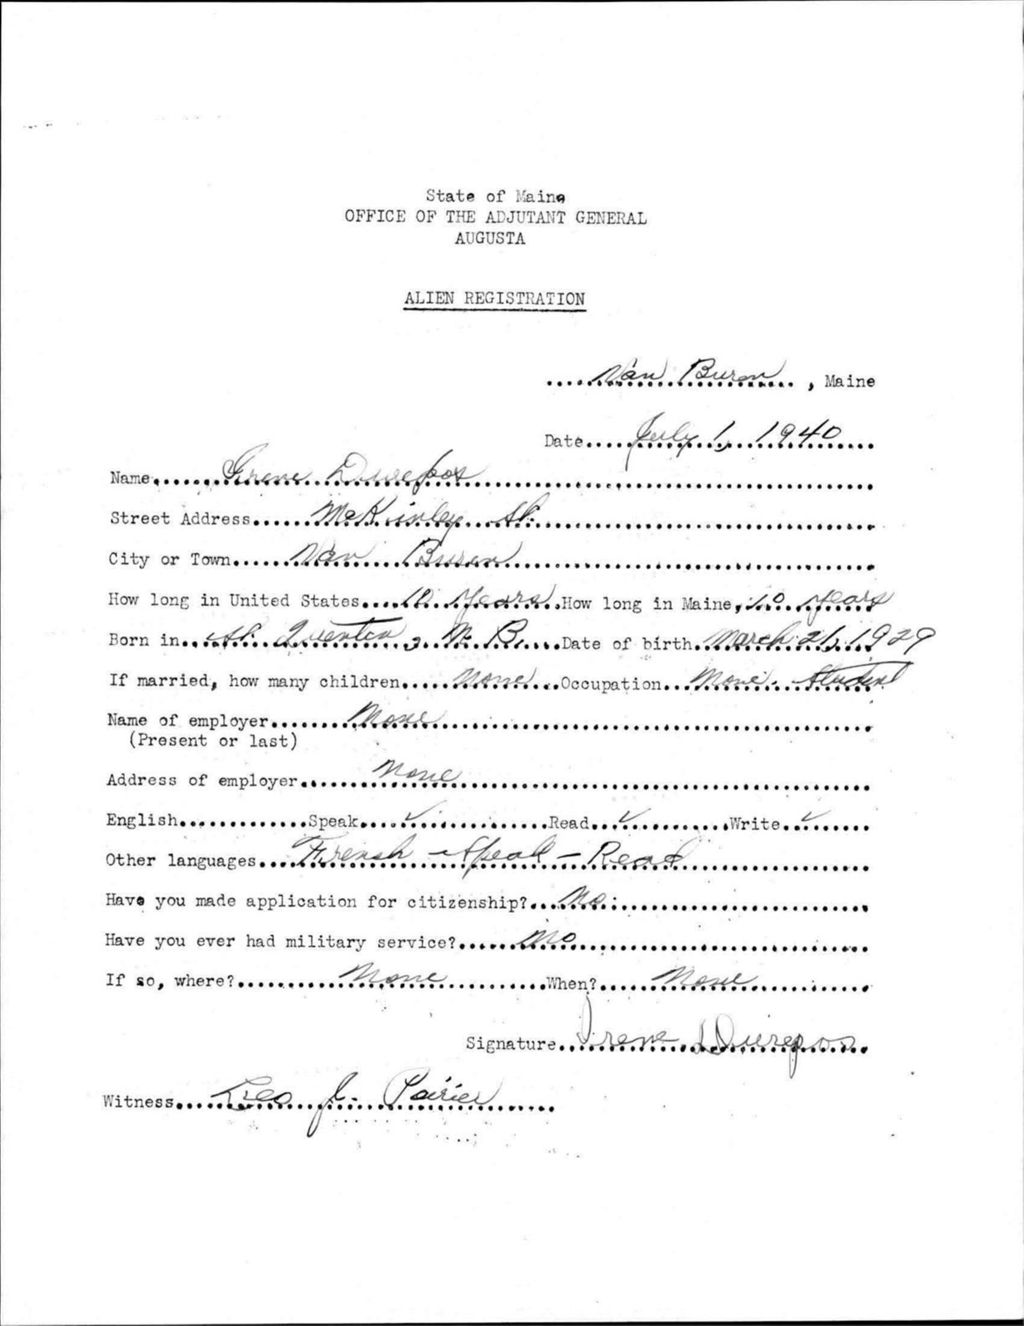 State of Maine
OFFICE OF THE ADJUTANT GENERAL
AUGUSTA
ALIEN REGISTRATION
Van Buren, Maine
Date July 1, 1940
Name Irene Durepos
Street Address McKinley St.
City or Town Van Buren
How long in United States 10 years How long in Maine 10 years
Born in St. Quentin, N. B. Date of birth March 21, 1929
If married, how many children None Occupation None. Student
Name of employer None
(Present or last)
Address of employer None
English Speak ✓ Read ✓ Write ✓
Other languages French - Speak - Read
Have you made application for citizenship? No.
Have you ever had military service? No
If so, where? None When? None
Signature Irene Durepos
Witness Leo J. Poirier